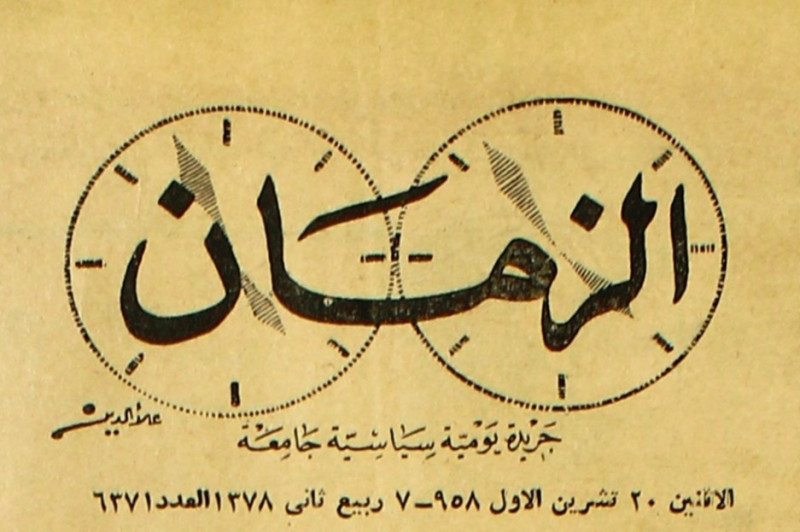 الزمان
علاء الدين
جَريدة يَوميّة سِيَاسِيّة جَامِعَة
الاثنين ٢٠ تشرين الاول ٩٥٨ـ٧ ربيع ثانى ١٣٧٨ العدد ٦٣٧١